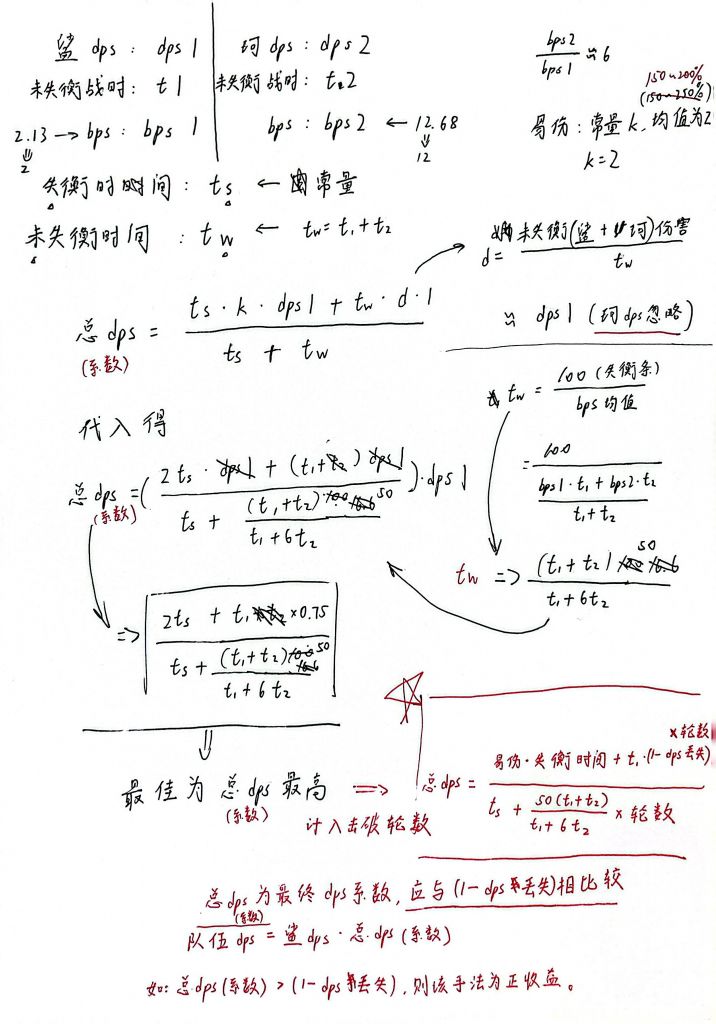 鲨 dps : dps1
未失衡战时: t1
2.13 → bps : bps 1
⇓
2
珂 dps : dps2
未失衡战时: t2
bps : bps2 ← 12.68
⇓
12
bps2/bps1 ≈ 6
150~200%
(150~250%)
易伤: 常量k, 均值为2
k=2
失衡时间: ts ← 常量
未失衡时间 : tw ← tw=t1+t2
d= 未失衡(鲨+珂)伤害/tw
总dps = (ts·k·dps1 + tw·d·1)/(ts + tw)
(系数)
≈ dps1 (珂dps忽略)
tw = 100(失衡条)/bps均值
= 100/((bps1·t1+bps2·t2)/(t1+t2))
代入得
总dps =((2ts·dps1 + (t1+t2)dps1)/(ts + (t1+t2)50/(t1+6t2)))·dps1
(系数)
tw => (t1+t2)50/(t1+6t2)
=> (2ts + t1×0.75)/(ts+(t1+t2)50/(t1+6t2))
⇓
最佳为总dps最高 =>
(系数)
计入击破轮数
总dps= (易伤·失衡时间+t1·(1-dps丢失)×轮数)/(ts + 50(t1+t2)/(t1+6t2) × 轮数)
总dps为最终dps系数, 应与(1-dps丢失)相比较
(系数)
队伍dps = 鲨dps·总dps(系数)
如: 总dps(系数) > (1-dps丢失), 则该手法为正收益。